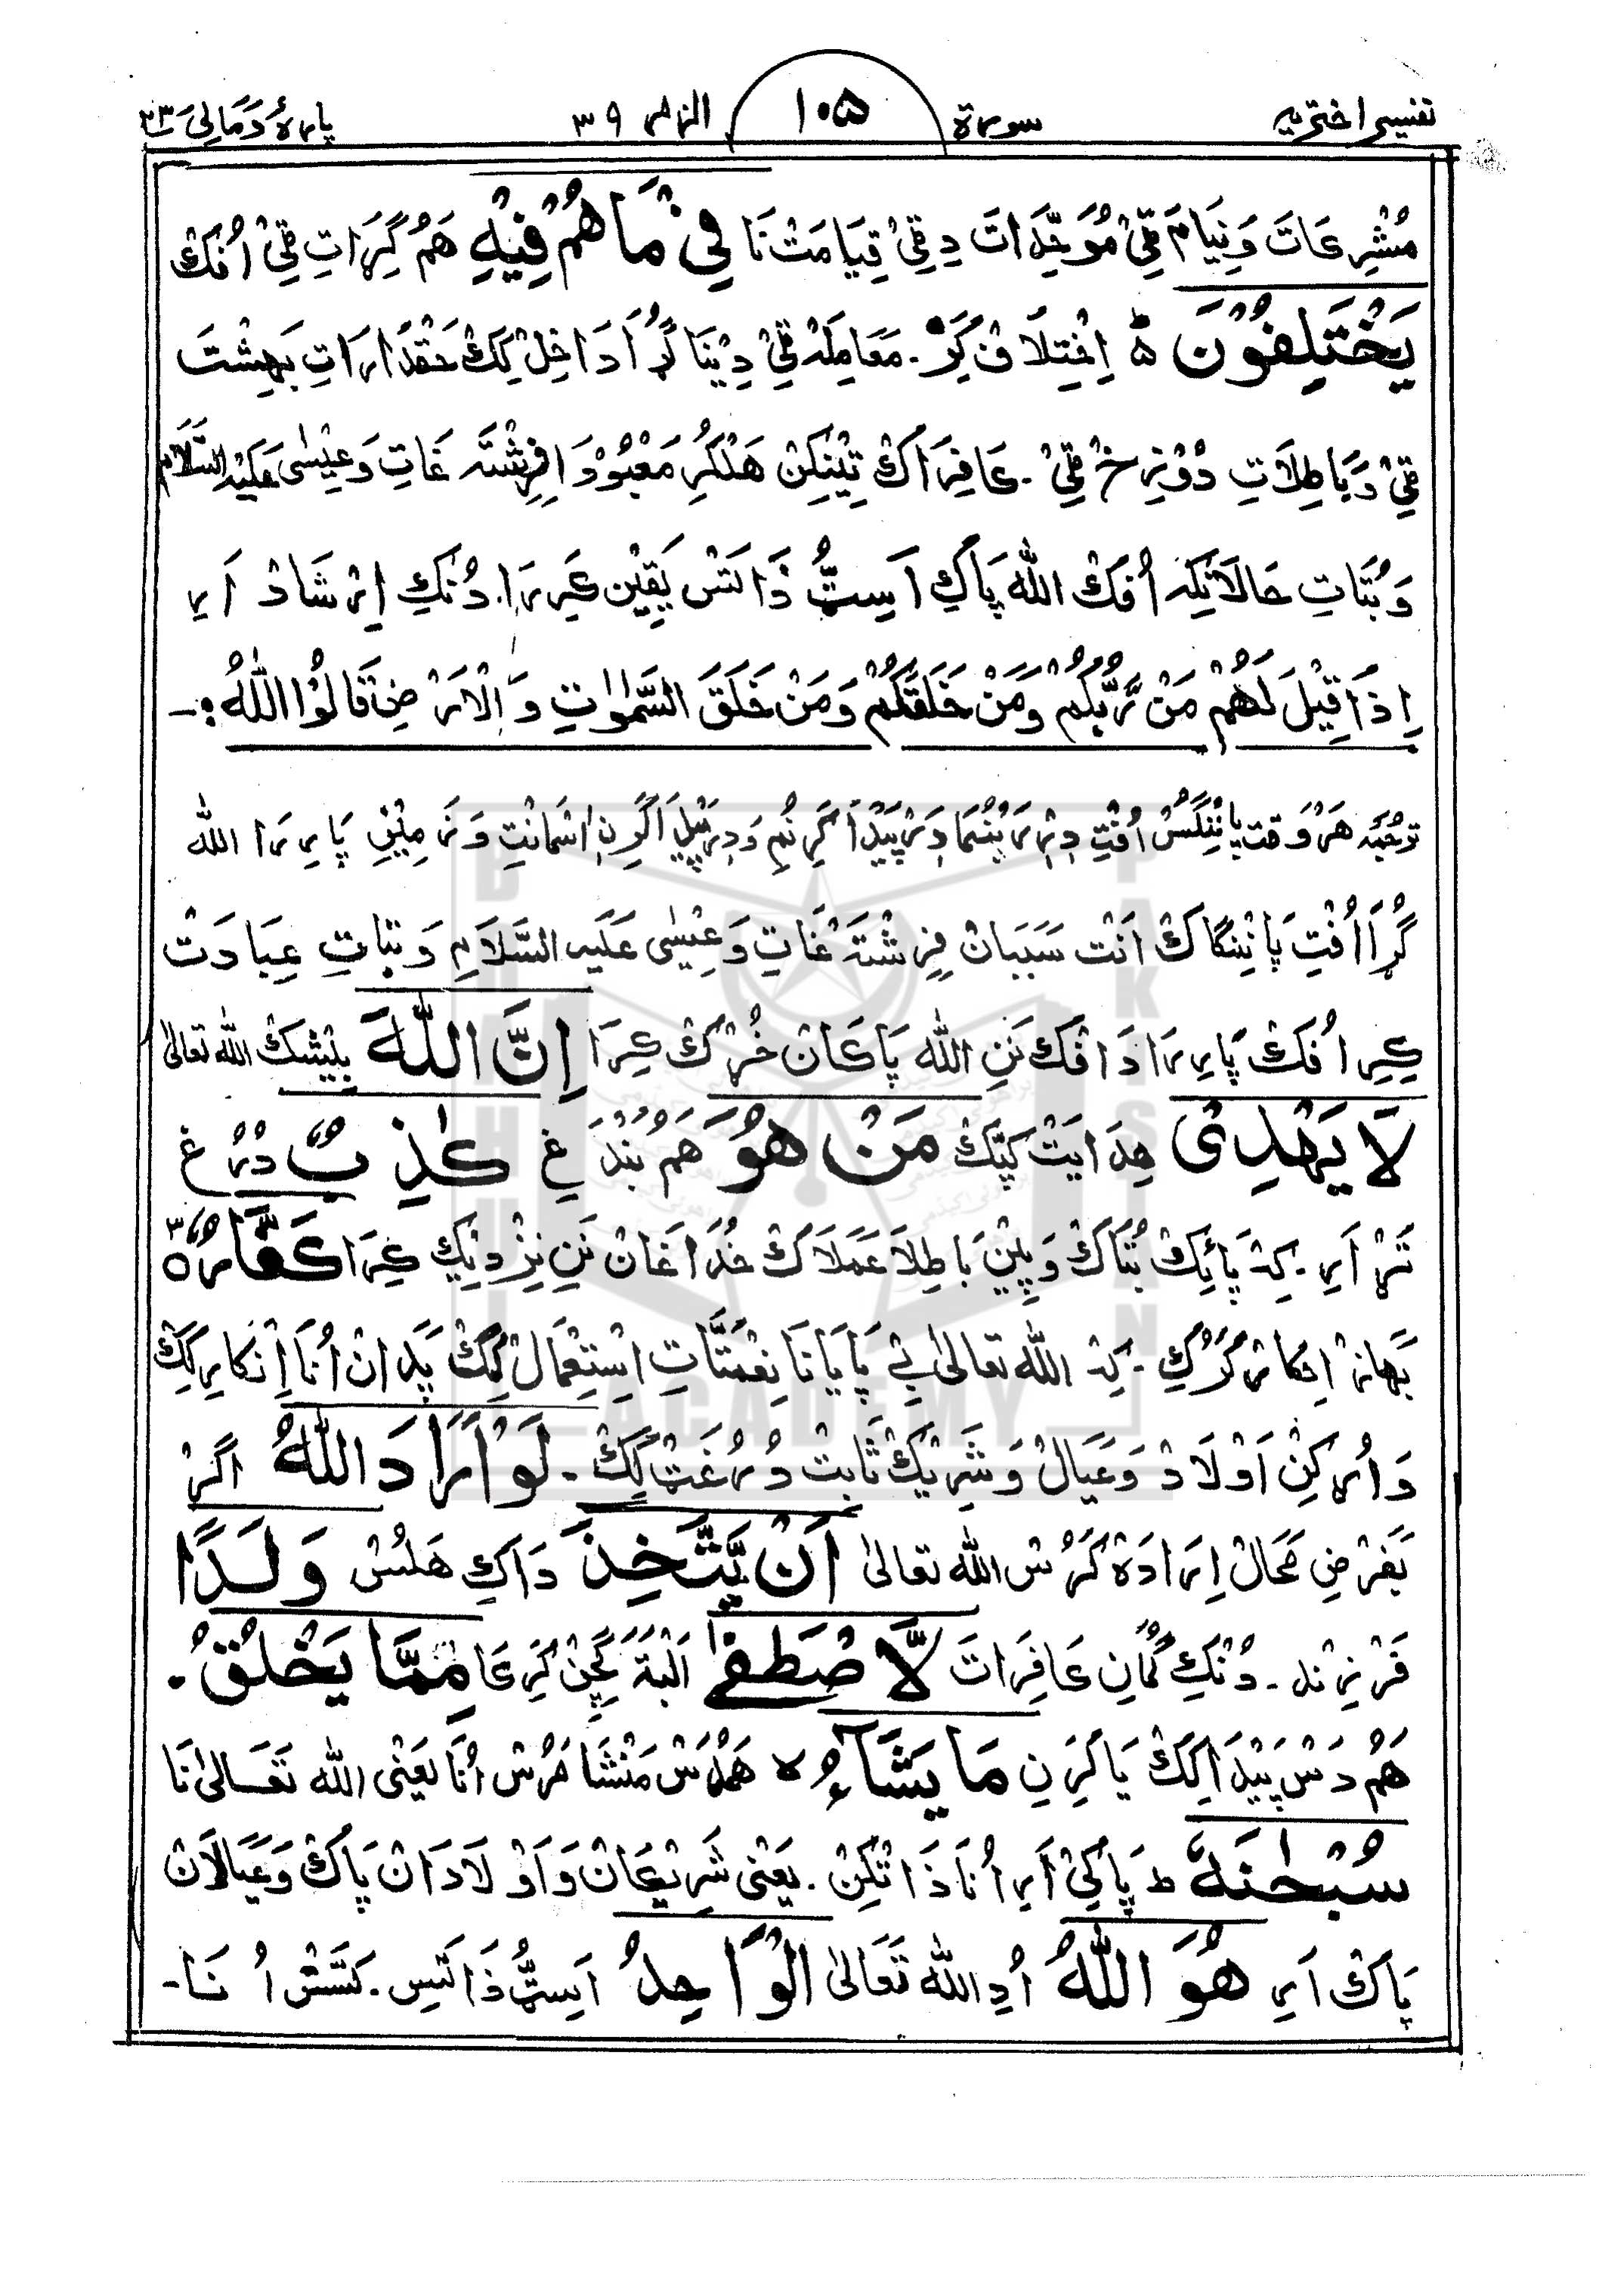 تفسیر اختریہ سورۃ ۱۰۵ الزمر ۳۹ پارۂ وَمَالِیَ ۲۳
مُشْرِعَاتَ وَنِیَام ٹِیْ مُوَحِّدَاتَ دِ ٹِیْ قِیَامَتْ نَا فِیْ مَا هُمْ فِیْهِ هَمُ گِرَاتِ ٹِیْ اُفَکْ
یَخْتَلِفُوْنَ ۵ اِخْتِلَافْ کَرْ۔ مَعَامِلَہ ٹِیْ دِیْنَا گُڑَا دَاخِلْ کِکْ حَقْدَارَاتِ بَهِشْتَ
ٹِیْ وَبَاطِلَاتِ دُوْزِخْ ٹِیْ۔ عَافِرَاکْ تِیْنِکِنْ هَلْکُرِ مَعْبُوْدَ اَفِرِشْتَہ غَاتِ وَعِیْسٰی عَلَیْہِ السَّلَام
وَبُتَّاتِ حَالَانِکِہ اُفَکْ اللّٰه پَاکِ اَسِٹُّ ذَاتَسْ یَقِیْن کَرِرَا۔ دُنْکِ اِرْشَادْ اَرِ
اِذَا قِیْلَ لَهُمْ مَنْ رَّبُّکُمْ وَمَنْ خَلَقَکُمْ وَمَنْ خَلَقَ السَّمٰوٰتِ وَالْاَرْضِ قَالُوْا اللّٰهُ :۔
ترجمہ هَرْوَقت پَانِنْگَسْ اُفْتِ دِرْ رَبِّ نُمَا دِرْ پَیْدَا کَرِ نُمِ وَ دِرْ پَیْدَا کَرِنِ اٰسْمَانْتِ وَزَمِیْنِ پَارِرَا اللّٰه
گُڑَا اُفْتِ پَانِنْگَاکْ اَنْت سَبَبَانْ فِرِشْتَہ غَاتِ وَعِیْسٰی عَلَیْہِ السَّلَامِ وَبُتَاتِ عِبَادَتْ
کِرِ اُفَکْ پَارِرَا دَافَکْ نَنِ اللّٰه پَاکَانْ خُرْکْ کِرَا اِنَّ اللّٰهَ بِیْشَکْ اللّٰه تعالیٰ
لَا یَهْدِیْ هِدَایَتْ کَپَّکْ مَنْ هُوَ هَمُ بُنْدَ غِ کٰذِبٌ دُرُغ
تَرْ اَرِ۔ کِہ پَائِکْ بُتَّاکْ وَپِیْنِ بَاطِلَا عَمَلَاکْ خُدَاغَانْ نَنِ نِزْدِیْکِ کِرَا کَفَّارٌ ۵ ۳
بَهَانْ اِنْکَارْ کَرُوْکِ۔ کِہ اللّٰه تعالیٰ بے پَایَانَا نِعْمَتَّاتِ اِسْتِعْمَالْ کِکْ پَدَانْ اُنَا اِنْکَارِ کِکْ
وَاُرْکِنْ اَوْلَادْ وَعَیَالْ وَشَرِیْکْ ثَابِتْ دُرُغَٹْ کِکْ۔ لَوْ اَرَادَ اللّٰهُ اَگَرْ
بَفَرْضِ مَحَالْ اِرَادَہْ کَرُسْ اللّٰه تعالیٰ اَنْ یَّتَّخِذَ دَاکِ هَلْسُ وَلَدًا
فَرْزِنْد۔ دُنْکِ گُمَانِ عَافِرَاتَ لَّاصْطَفٰی اَلْبَتَہ گَچِنْ کَرِعَا مِمَّا یَخْلُقُ۔
هَمُ دَسْ پَیْدَا کِکْ یَا کَرِنِ مَا یَشَآءُ ۙ هَمُڑَسْ مَنْشَا مَرُسْ اُنَا یَعْنٰی اللّٰه تَعَالیٰ نَا
سُبْحٰنَهٗ ط پَاکِیْ اَرِ اُنَا ذَاتْکِنْ۔ یعنی شَرِیْعَانْ وَاَوْلَادَانْ پَاکْ وَعَیَالَانْ
پَاکْ اَرِ هُوَ اللّٰهُ اُدِ اللّٰه تَعَالیٰ الْوَاحِدُ اَسِٹُّ ذَاتَسِ۔ کَسَّسْ اُنَا۔
BRAHUI ACADEMY PAKISTAN